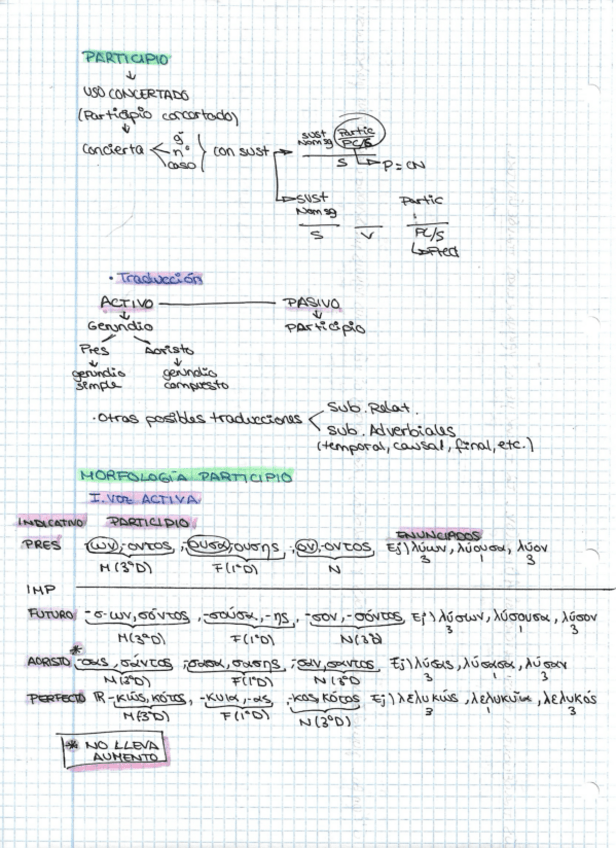 PARTICIPIO
↓
USO CONCERTADO
(Participio concertado)
↓
concierta < gº nº caso } con sust → sust Nom sg Partic PC/S
S → P = CN
→ sust Nom sg Partic
S V PC/S
→ Pred
· Traducción
ACTIVO — PASIVO
↓ ↓
Gerundio Participio
Pres Aoristo
↓ ↓
gerundio simple gerundio compuesto
· Otras posibles traducciones < Sub. Relat.
Sub. Adverbiales
(temporal, causal, final, etc.)
MORFOLOGÍA PARTICIPIO
I. VOZ ACTIVA
INDICATIVO PARTICIPIO ENUNCIADOS
PRES ων, -οντος, -ουσα, ουσης, -ον, -οντος Ej) λύων, λύουσα, λύον
M (3ªD) F (1ªD) N 3 1 3
IMP
FUTURO -σ-ων, σόντος, -σούσα, -ης, -σον, -σόντος Ej) λύσων, λύσουσα, λύσον
M (3ªD) F (1ªD) N (3ª) 3 1 3
AORISTO* -σας, σάντος, -σασα, σασης, -σαν, σαντος Ej) λύσας, λύσασα, λύσαν
M (3ªD) F (1ªD) N (3ªD) 3 1 3
PERFECTO R -κώς, κότος, -κυια, -ας, -κος, κότος Ej) λελυκώς, λελυκυῖα, λελυκός
M (3ªD) F (1ªD) N (3ªD) 3 1 3
* NO LLEVA
AUMENTO